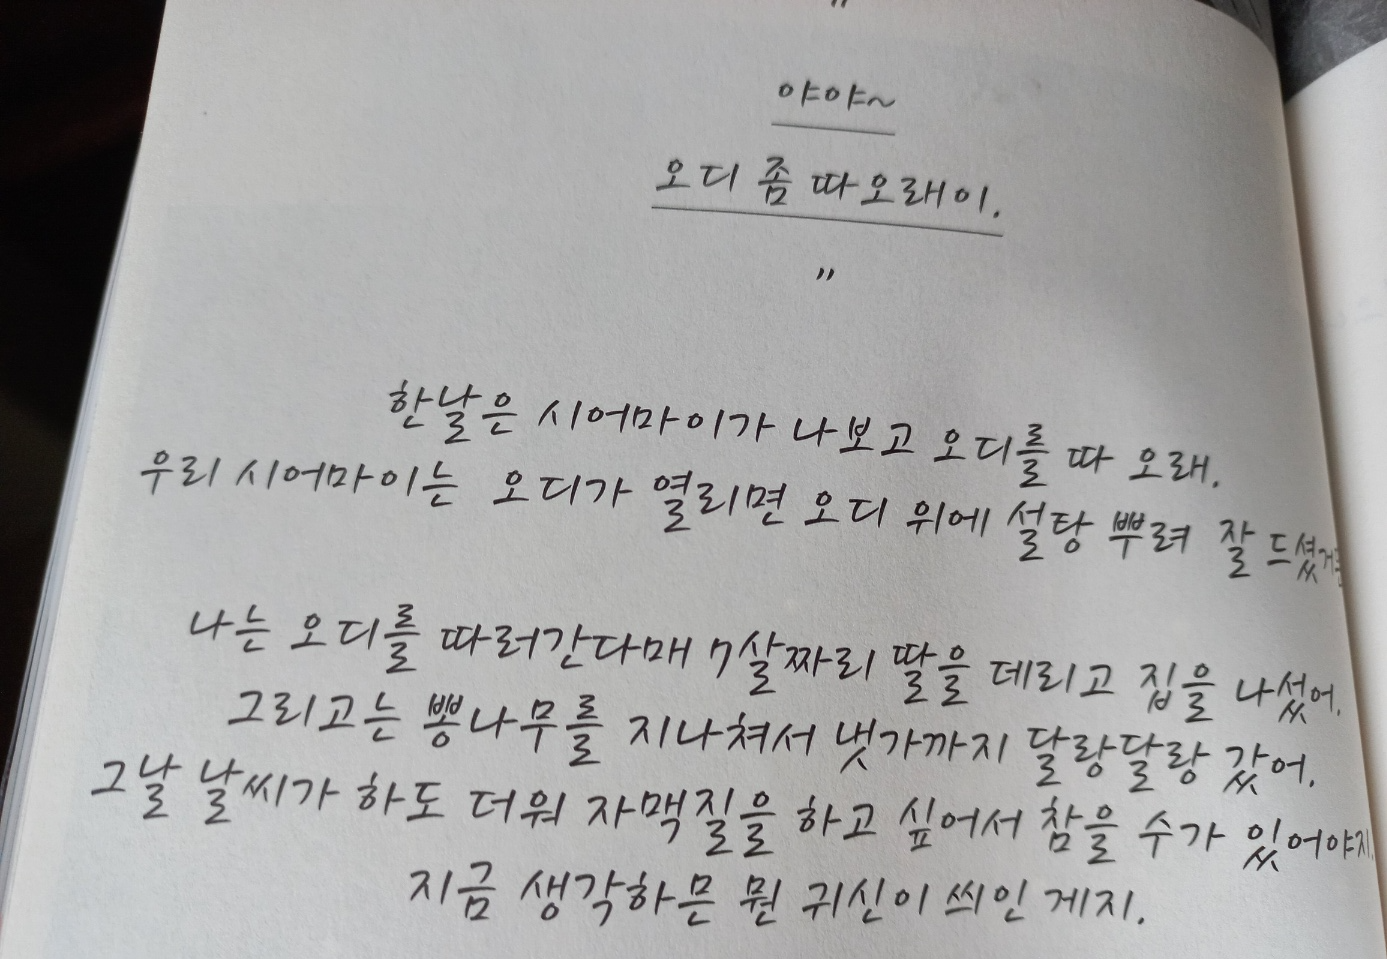 "
야야~
오디 좀 따오래이.
"
한날은 시어마이가 나보고 오디를 따 오래.
우리 시어마이는 오디가 열리면 오디 위에 설탕 뿌려 잘
나는 오디를 따러간다매 7살짜리 딸을 데리고 집을 나섰어.
그리고는 뽕나무를 지나쳐서 냇가까지 달랑달랑 갔어.
그날 날씨가 하도 더워 자맥질을 하고 싶어서 참을 수가 있어야지.
지금 생각하믄 뭔 귀신이 씌인 게지.